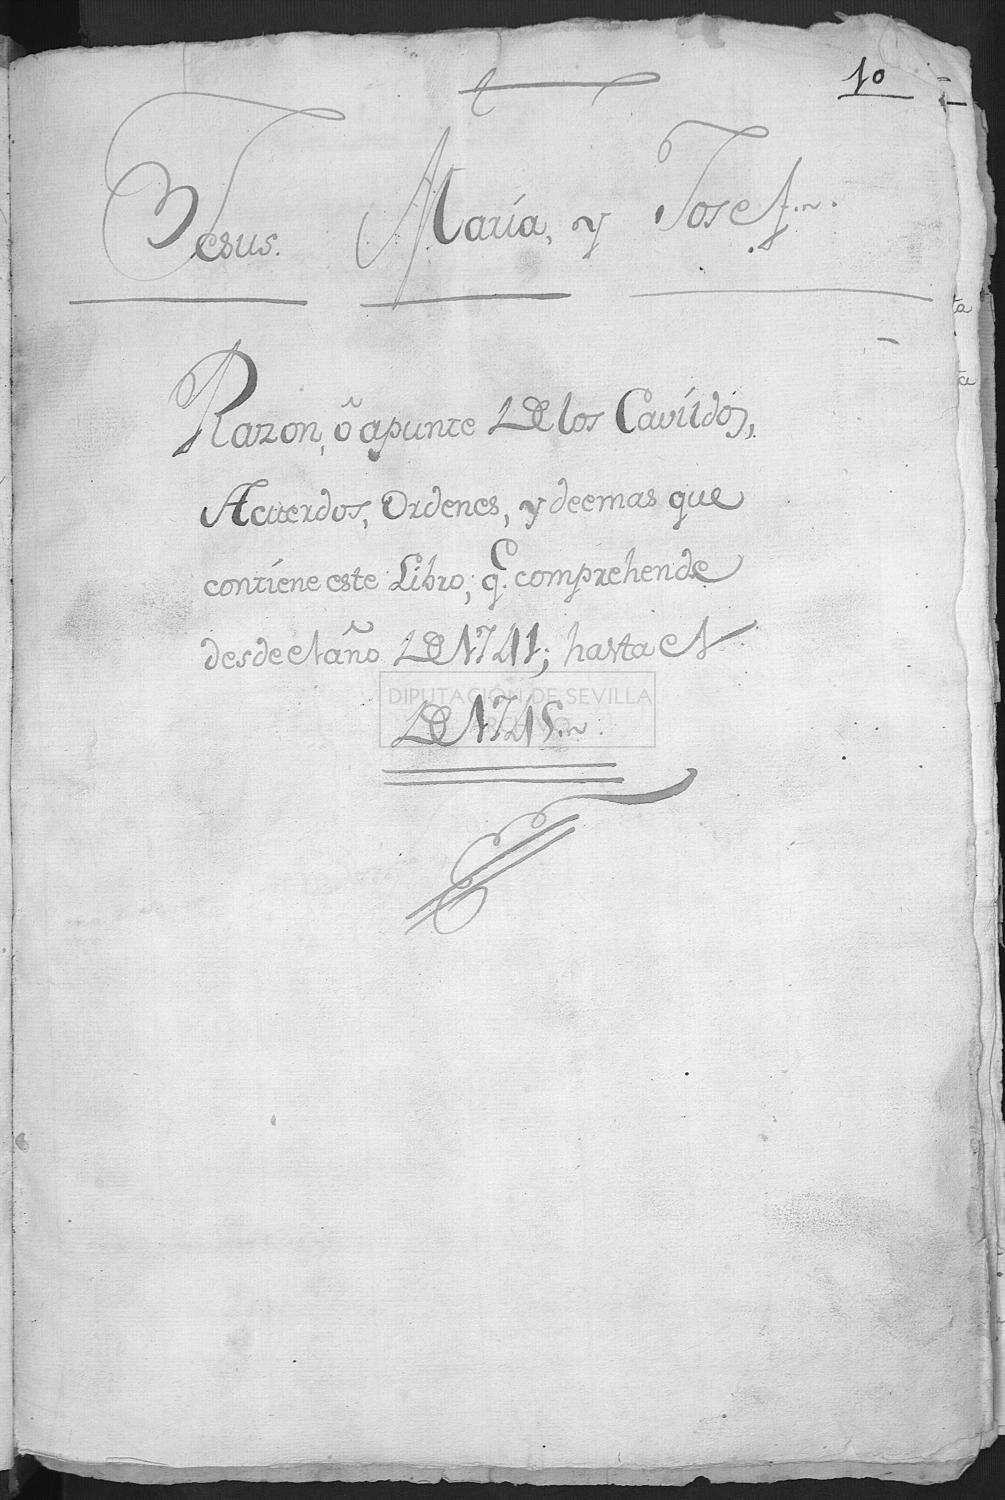 10
Jesus. María, y Josef.
Razon, ò apunte De los Cavíldos,
Acuerdos, Ordenes, y deemas que
contíene este Libro; q. comprehende
desde el año De 1741; hasta el
DIPUTACIÓN DE SEVILLA
ARCHIVO
De 1745.